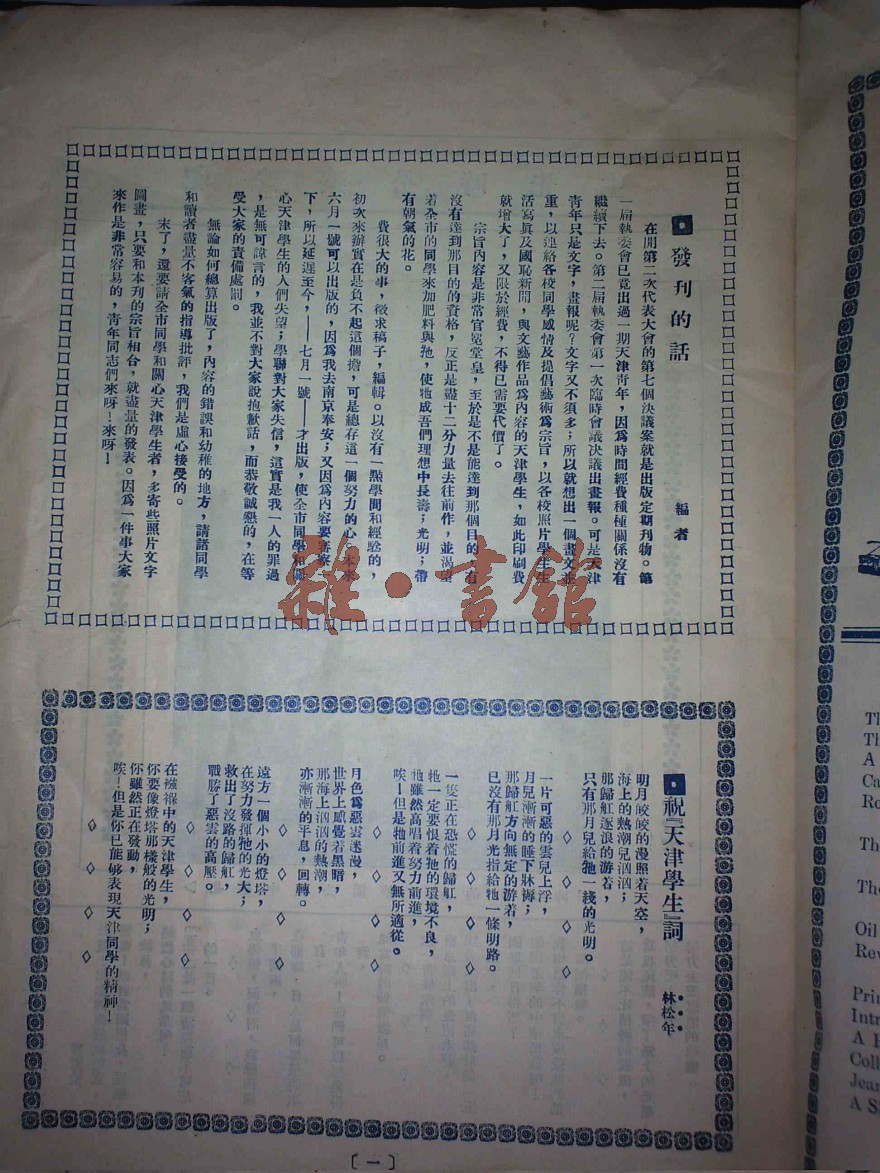 發刊的話
編者
在開第二次代表大會的第七個決議案就是出版定期刊物。第
一屆執委會已竟出過一期天津青年，因爲時間經費種種關係沒有
繼續下去。第二屆執委會第一次臨時會議決議出畫報。可是天津
青年只是文字，畫報呢？文字又不須多；所以就想出一個畫文並
重，以連絡各校同學感情及提倡藝術爲宗旨，以各校照片學生生
活寫眞及國恥新聞，與文藝作品爲內容的天津學生，如此印刷費
就增大了，又限於經費，不得已需要代價了。
宗旨內容是非常官冕堂皇，至於是不是能達到那個目的，有
沒有達到那目的的資格，反正是盡十二分力量去往前作，並渴
着全市的同學來加肥料與牠，使牠成吾們理想中長壽；光明；帶
有朝氣的花。
費很大的事，徵求稿子，編輯。以沒有一點學間和經驗的，
初次來辦實在是負不起這個擔，可是總存這一個努力的心，本來
六月一號可以出版的，因爲我去南京奉安；又因爲內容要審察
下，所以延遲至今，——七月一號——才出版，使全市同學和關
心天津學生的人們失望；學聯對大家失信，這實是我一人的罪過
，是無可諱言的，我並不對大家說抱歉話，而恭敬誠懇的，在等
受大家的責備處罰。
無論如何總算出版了，內容的錯誤和幼稚的地方，請諸同學
和讀者盡量不客氣的指導批評，我們是虛心接受的。
末了，還要請全市同學和關心天津學生者，多寄些照片文字
圖畫，只要和本刊的宗旨相合，就盡量的發表。因爲一件事大家
來作是非常容易的，靑年同志們來呀！來呀！
祝『天津學生』詞
林松年
明月皎皎的漫照着天空，
海上的熱潮兒汹汹；
那歸舡逐浪的游着，
只有那月兒給牠一綫的光明。
一片可惡的雲兒上浮，
月兒漸漸的睡下牀褥；
那歸舡方向無定的游着，
已沒有那月光指給牠一條明路。
一隻正在恐慌的歸舡，
牠一定要恨着牠的環境不良，
牠雖然高唱着努力前進，
唉！但是牠前進又無所適從。
月色爲惡雲迷漫，
世界上感覺着黑暗，
那海上汹汹的熱潮，
亦漸漸的平息，回轉。
遠方一個小小的燈塔，
在努力發揮牠的光大；
救出了沒路的歸舡，
戰勝了惡雲的高壓。
在襁褓中的天津學生，
你要像燈塔那樣般的光明；
你雖然正在發動，
唉！但是你已能够表現天津同學的精神！
〔一〕
雜·書館
Th
Th
A
Ca
Ro
The
The
Oil
Rev
Prin
Intr
Coll
Jean
A S